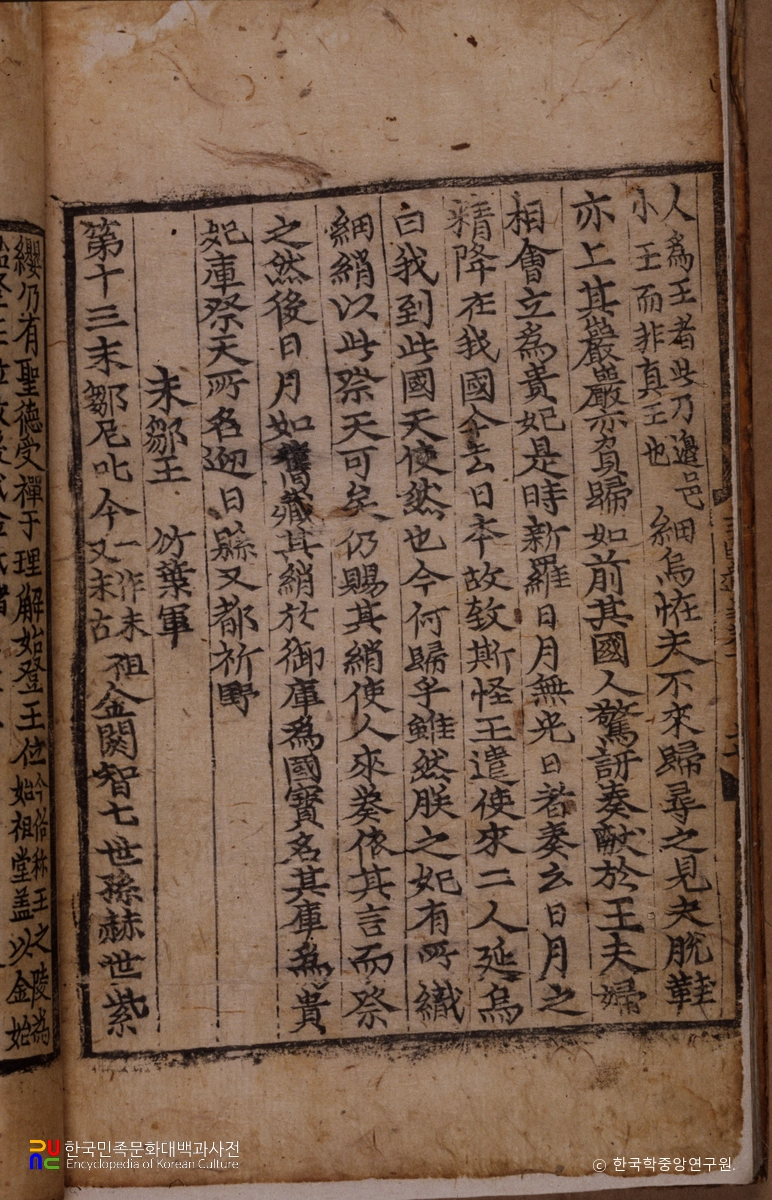 人爲王者此乃邊邑
小王而非真王也
細烏恠夫不來歸尋之見夫脫鞋
亦上其巖巖亦負歸如前其國人驚訝奏獻於王夫婦
相會立爲貴妃是時新羅日月無光日者奏云日月之
精降在我國今去日本故致斯怪王遣使來二人延烏
白我到此國天使然也今何歸乎雖然朕之妃有所織
細綃以此祭天可矣仍賜其綃使人來奏依其言而祭
之然後日月如舊藏其綃於御庫爲國寳名其庫爲貴
妃庫祭天所名迎日縣又都祈野
未鄒王 竹葉軍
第十三末鄒尼叱今
一作未
又未古
祖金閼智七世孫赫世紫
纓仍有聖德受禪于理解始登王位
今俗称王之陵爲
始祖堂盖以金始
한국민족문화대백과사전
Encyclopedia of Korean Culture
© 한국학중앙연구원.